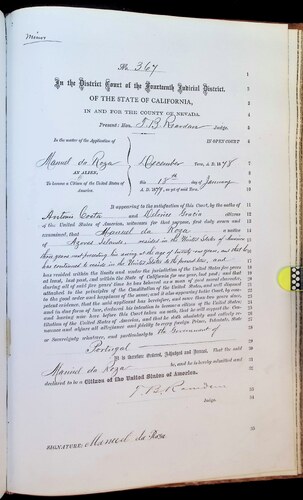 Minor
No. 367
In the District Court of the Fourteenth Judicial District,
OF THE STATE OF CALIFORNIA,
IN AND FOR THE COUNTY OF NEVADA.
Present: Hon. T. B. Reardan Judge.
In the matter of the Application of
IN OPEN COURT
Manuel da Roza
December Term, A. D. 1878
AN ALIEN,
this 18th day of January
To become a Citizen of the United States of America.
A. D. 1879, as yet of said Term.
It appearing to the satisfaction of this Court, by the oaths of
Antoni Costa and citizens
of the United States of America, witnesses for that purpose, first duly sworn and
examined, that Manuel da Roza a native
of Azores Islands, resided in the United States of America
three years next preceding his arriving at the age of twenty-one years, and that he
has continued to reside in the United States to the present time, and
has resided within the limits and under the jurisdiction of the United States five years
at least, last past, and within the State of California for one year, last past; and that
during all of said five years' time he has behaved as a man of good moral character,
attached to the principles of the Constitution of the United States, and well disposed
to the good order and happiness of the same; and it also appearing to the Court, by com-
petent evidence, that the said applicant has heretofore, and more than two years since,
and in due form of law, declared his intention to become a citizen of the United States,
and having now here before this Court taken an oath, that he will support the Consti-
tution of the United States of America, and that he doth absolutely and entirely re-
nounce and abjure all allegiance and fidelity to every foreign Prince, Potentate, State
or Sovereignty whatever, and particularly to the Government of
Portugal
It is therefore Ordered, Adjudged and Decreed, That the said
Manuel da Roza be, and he is hereby admitted and
declared to be a Citizen of the United States of America.
T. B. Reardan
Judge.
SIGNATURE: Manuel da Roza